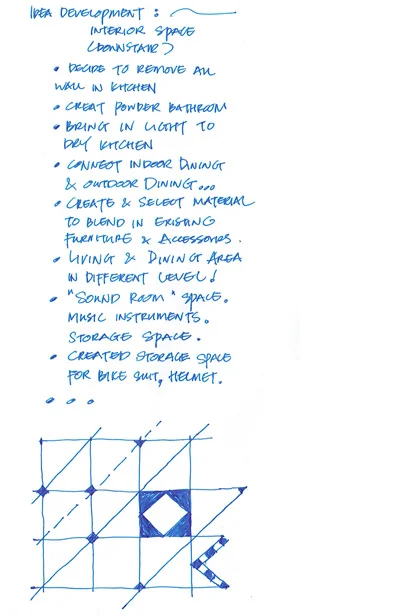 IDEA DEVELOPMENT :
INTERIOR SPACE
(DOWNSTAIR)
• DECIDE TO REMOVE ALL
WALL IN KITCHEN
• CREAT POWDER BATHROOM
• BRING IN LIGHT TO
DRY KITCHEN
• CONNECT INDOOR DINING
& OUTDOOR DINING...
• CREATE & SELECT MATERIAL
TO BLEND IN EXISTING
FURNITURE & ACCESSORIES.
• LIVING & DINING AREA
IN DIFFERENT LEVEL!
• "SOUND ROOM" SPACE.
MUSIC INSTRUMENTS.
STORAGE SPACE.
• CREATED STORAGE SPACE
FOR BIKE SUIT, HELMET.
• • •